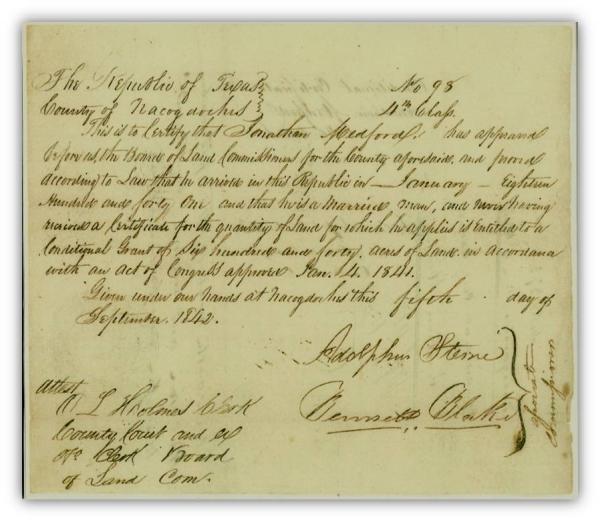 The Republic of Texas No 98
County of Nacogdoches 4th Class.
This is to Certify that Jonathan Medford has appeared
before us, the Board of Land Commissioners for the County aforesaid, and proved
according to Law that he arrived in this Republic in January Eighteen
Hundred and forty One and that he is a Married man, and never having
received a Certificate for the quantity of Land for which he applies is Entitled to a
Conditional Grant of Six hundred and forty acres of Land in accordance
with an act of Congress approved Jan. 4. 1841.
Given under our hands at Nacogdoches this fifth day of
September. 1842.
Adolphus Sterne
Bennett Blake
Attest
L Holmes Clerk
County Court and ex
Clerk Board
of Land Com.